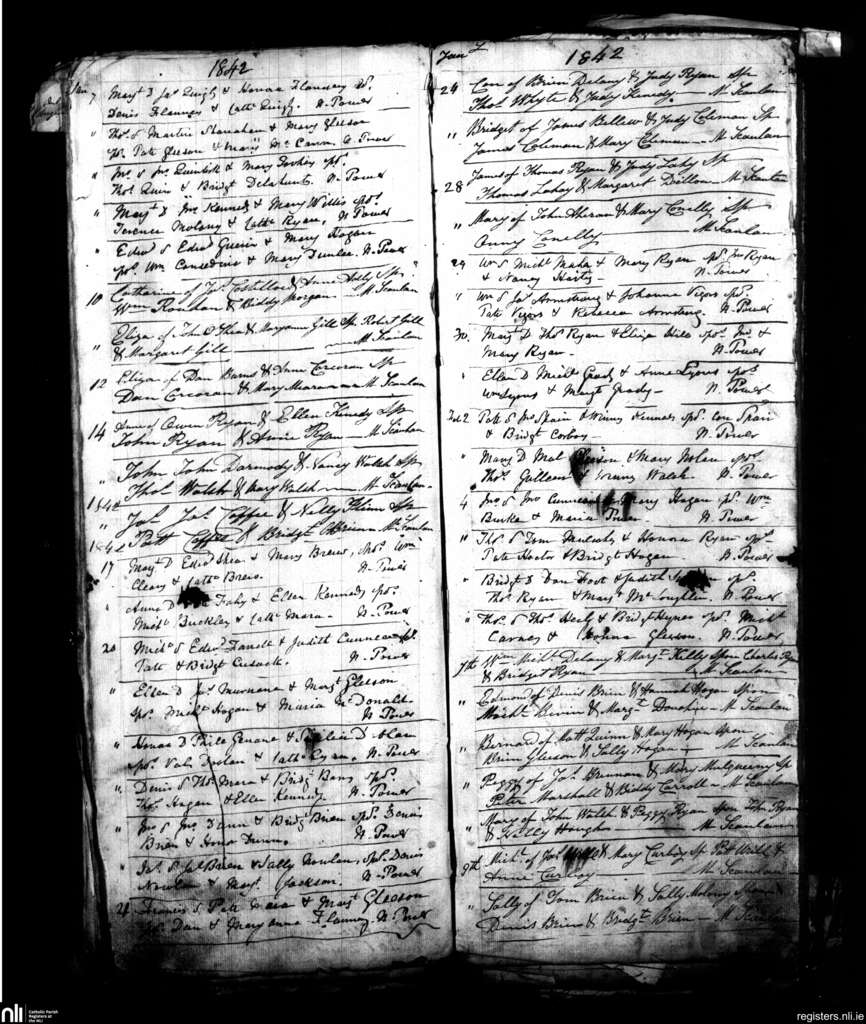 1842
Jan 7 Margt D Jas Quigly & Honora Flannery Sp.
Denis Flannery & Cathe Quigly. N. Power
" Thos S Martin Shanahan & Mary Gleeson
sps. Patt Gleeson & Mary Mc
" Jno. S Jno. & Mary sps.
Thos Quin & Bridgt Delahunt. N. Power
" Margt D Jno Kennedy & Mary Willis sps.
Terence Molony & Cathe Ryan. N. Power
" Edwd S Edwd Guerin & Mary Hogan
sps. Wm Considine & Mary Dunlea. N. Power
10 Catharine of Jas Costilloe & Anne Sp.
Wm & Biddy Morgan — M Scanlan
" Eliza of John O Shea & Maryanne Gill Sp. Robert Gill
& Margaret Gill — M Scanlan
12 Eliza of Dan Burns & Anne Corcoran Sp
Dan Corcoran & Mary Meara — M Scanlan
14 Anne of Owen Ryan & Ellen Kenedy Sp
John Ryan & Annie Ryan — M Scanlan
" John John Darmody & Nancy Walsh Sp
Thos Walsh & Mary Walsh — M Scanlan
1842
" Jas Coffee & Nelly Sp
Patt Coffee & Bridgt OBrien — M Scanlan
1842
17 Margt D Edwd Shea & Mary Brew, sps. Wm
Cleary & Cathe Brew. N. Power
" Anne D Fahy & Ellen Kennedy sps.
Michl Buckley & Cathe Mara. N. Power
20 Michl S Edwd & Judith
Patt & Bridgt Cusack. N. Power
" Ellen D Murnane & Margt Gleeson
sps. Michl Hogan & Maria Mc Donald.
N. Power
" Honor D Philip &
sps. & Cathe Ryan. N. Power
" Denis S Thos Mara & Bridgt sps.
Thos Hogan & Ellen Kennedy. N. Power
" Jno S Jno Dunn & Bridgt Brien sps. Denis
Brien & Honor Dunn. N. Power
" Jas S Jas Brien & Sally Nowlan, sps. Denis
Nowlan & Margt Jackson. N. Power
21 Francis S Patt & Margt Gleeson
sps. Dan & Mary anne Flannery N. Power
Jany 1842
24 Con of Brien Delany & Judy Ryan Sp
Thos Whyte & Judy Kenedy — M Scanlan
" Bridget of James & Judy Coleman Sp
James Coleman & Mary Coleman — M Scanlan
" James of Thomas Ryan & Judy Lahy Sp
28 Thomas Lahy & Margaret Dillon — M Scanlan
" Mary of John Ahearn & Mary Conelly Sp
Anny Conelly M Scanlan
29 Wm S Michl Meka & Mary Ryan sps. Jno Ryan
& Nancy N. Power
" Wm S Jas Armstrong & Johanna Vigors sps.
Patt Vigors & Rebecca Armstrong. N. Power
30 Margt D Thos Ryan & Eliza Hill sps. Jno &
Mary Ryan. N. Power
" Ellen D Michl Grady & Anne Lyons sps.
Wm Lyons & Margt Grady — N. Power
Feb 2 Patt S Jno Spain & Winny sps. Con Spain
& Bridgt Corboy — N. Power
" Mary D Mat Gleeson & Mary Nolan sps.
Thos & Winny Walsh. N. Power
4 Jno S Jno & Mary Hogan sp. Wm
Burke & Maria Power N. Power
" Thos S Tom Mulcahy & Honora Ryan sps.
Pate Hector & Bridgt Hogan. N. Power
" Bridgt D Dan & Judith sps.
Thos Ryan & Margt Mc Loughlin. N. Power
" Thos S Thos Healy & Bridgt Hynes sps. Michl
Carney & Gleeson. N. Power
7th Wm Michl Delany & Margt Kelly Spon Charles Ryan
& Bridget Ryan M Scanlan
" Edmond of Denis Brien & Hannah Hogan Spon
Michl & Margt Donohoe — M Scanlan
" Bernard of Matt Quinn & Mary Hogan Spon
Brien Gleeson & Sally Hogan — M Scanlan
" Peggy of Jas Brennan & Mary Mulqueeny Sp
Peter Marshall & Biddy Carroll — M Scanlan
" Mary of John Walsh & Peggy Ryan Spon John Ryan
& M Scanlan
9th Michl of Jas & Mary Curboy Sp. Patt &
Anne Curboy — M Scanlan
" Sally of Tom Brien & Sally Molony Spons
Denis Brien & Bridgt Brien — M Scanlan
nli Catholic Parish
Registers at
the NLI
registers.nli.ie